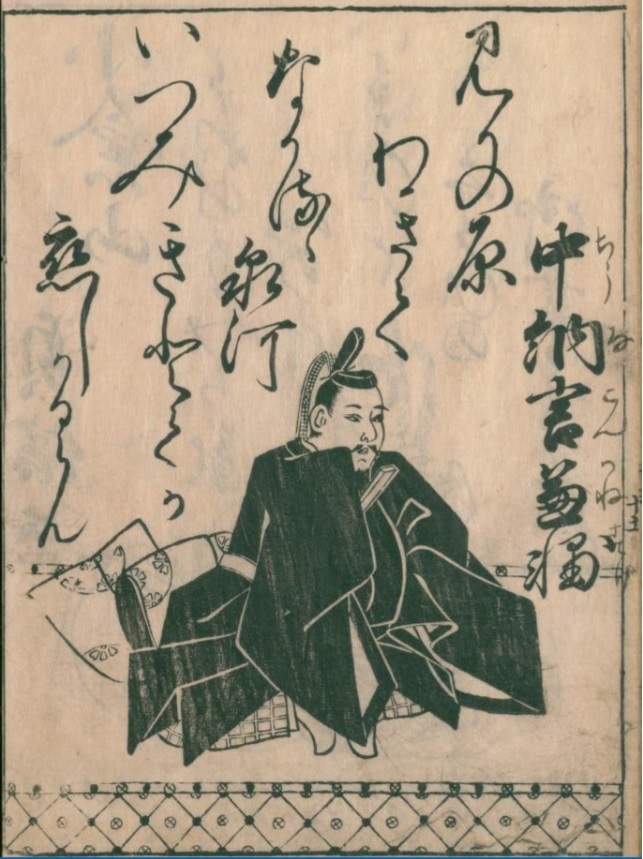 中納言兼輔
ちうなごんかねすけ
見かの原
わきて
ながるゝ
泉河
いつみきとてか
恋しかるらん